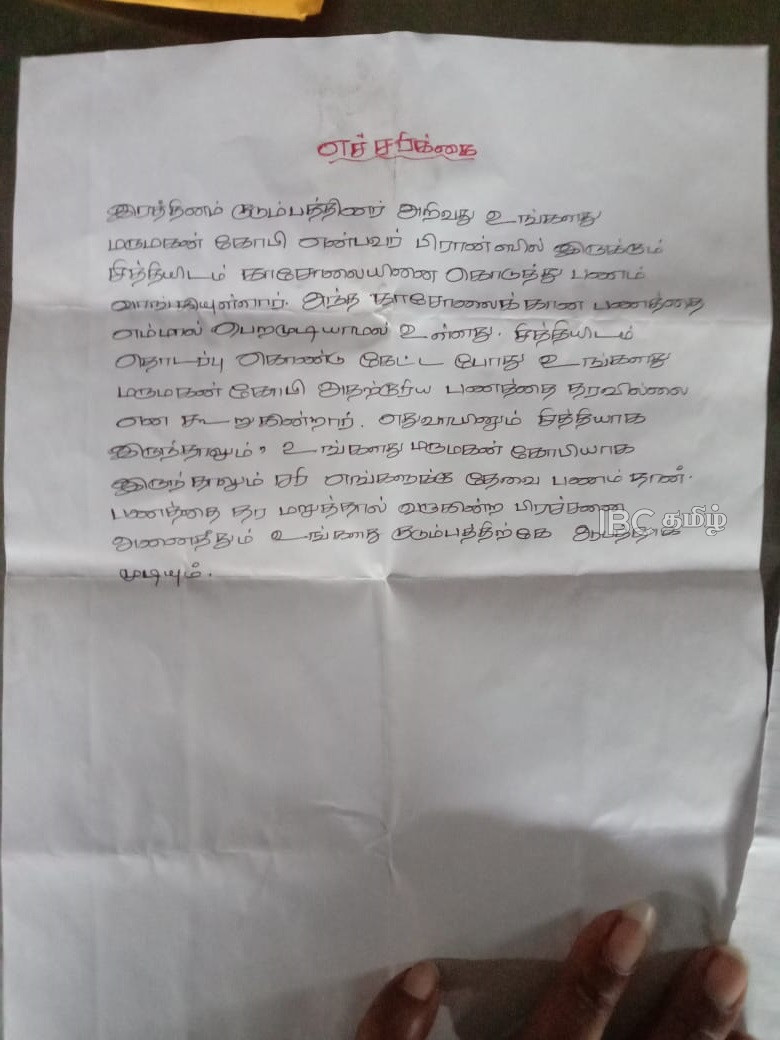 எச்சரிக்கை
இரத்தினம் குடும்பத்தினர் அறிவது உங்களது
மருமகன் கோபி என்பவர் பிரான்ஸில் இருக்கும்
சித்தியிடம் காசோலையினை கொடுத்து பணம்
வாங்கியுள்ளார். அந்த காசோலைக்கான பணத்தை
எம்மால் பெறமுடியாமல் உள்ளது. சித்தியிடம்
தொடர்பு கொண்டு கேட்ட போது உங்களது
மருமகன் கோபி அதற்குரிய பணத்தை தரவில்லை
என கூறுகின்றார். எதுவாயினும் சித்தியாக
இருந்தாலும், உங்களது மருமகன் கோபியாக
இருந்தாலும் சரி எங்களுக்கு தேவை பணம் தான்.
பணத்தை தர மறுத்தால் வருகின்ற பிரச்சனை
அனைத்தும் உங்களது குடும்பத்திற்கே ஆபத்தாக
முடியும்.
IBC தமிழ்